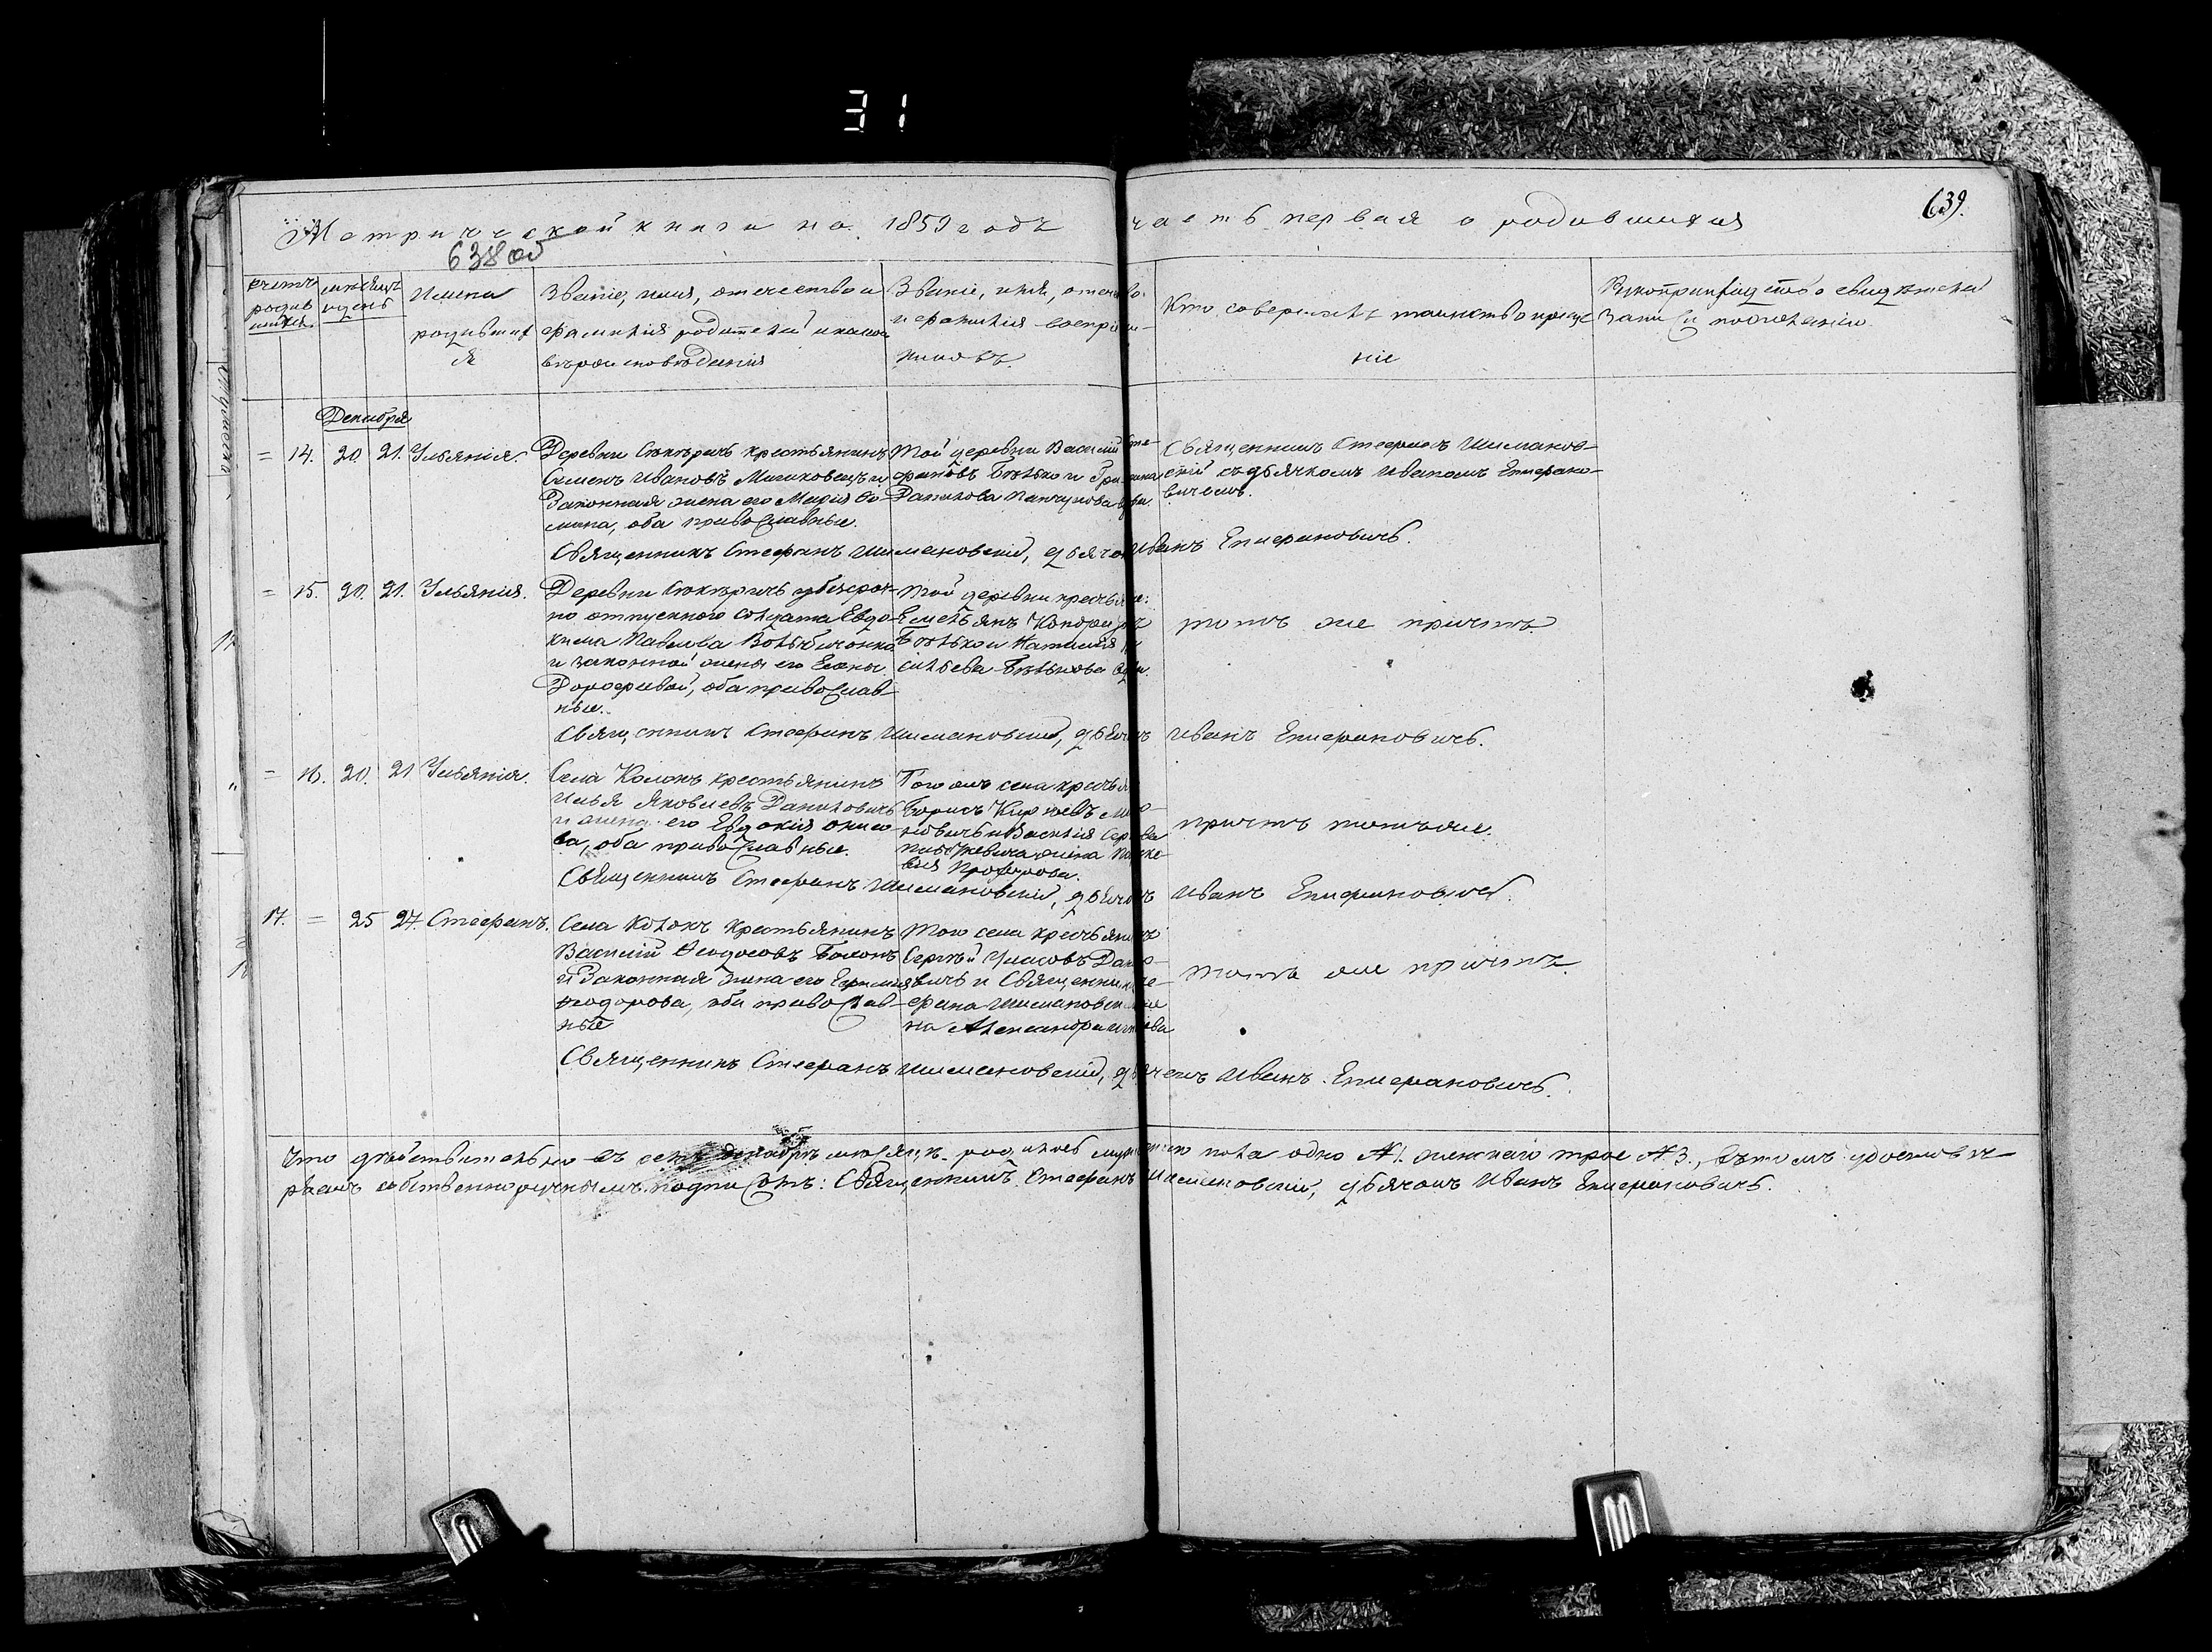 31
Метрической книги на 1859 годъ часть первая о родившихся
639.
638 об
Счетъ родившихся
мѣсяцъ и день
Имена
родившихся
Званіе, имя, отечество и
фамилія родителей и какого
вѣроисповѣданія
Званіе, имя, отечество
и фамилія воспріем-
никовъ.
Кто совершалъ таинство креще
ніе
Рукоприкладство свидѣтелей
записи по желанію
Декабря
= 14. 20. 21. Ульянія.
Деревни крестьянинъ
Семенъ Ивановъ и
Законная жена его Марія Ѳо-
мина, оба православные.
Той деревни Василій Сте-
фановъ Бѣлько и
Данилова
Священникъ Стефанъ Шиманов-
скій съ дьячкомъ Иваномъ Епифано-
вичемъ.
Священникъ Стефанъ Шимановскій, дьячокъ Иванъ Епифановичъ.
= 15. 20. 21. Ульянія.
Деревни безсроч-
но отпускного солдата Евдо-
кима Павлова
и законной жены его Елены
Дорофеевой, оба православ-
ные.
Той деревни крестьяне:
Емельянъ
Бѣлько и Наталія
Бѣлькова
тотъ же причтъ.
Священникъ Стефанъ Шимановскій, дьячокъ Иванъ Епифановичъ.
= 16. 20. 21 Ульянія.
Села Колокъ крестьянинъ
Илья Яковлевъ Даниловичъ
и жена его Евдокія
ва, оба православные.
Того жъ села крестьянинъ
Борисъ
жена
Прохорова.
причтъ тотъ же.
Священникъ Стефанъ Шимановскій, дьячокъ Иванъ Епифановичъ.
17. = 25 27. Стефанъ.
Села Колокъ крестьянинъ
Василій Ѳеодосовъ
и Законная жена его
Ѳеодорова, оба православ-
ные
Того села крестьянинъ
Сергѣй Дани-
вичъ и Священника Сте-
фана Шимановскаго же
на Александра
тотъ же причтъ.
Священникъ Стефанъ Шимановскій, дьячокъ Иванъ Епифановичъ.
Что дѣйствительно въ семъ декабрѣ мѣсяцѣ родилось мужескаго пола одно № 1. женскаго трое № 3., въ томъ удостовѣ-
ряемъ собственноручнымъ подписомъ: Священникъ Стефанъ Шимановскій, дьячокъ Иванъ Епифановичъ.